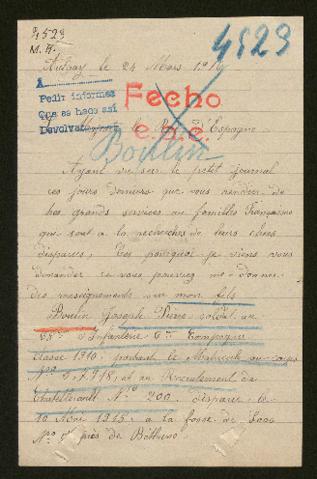 4523
4523
Autgay, le 24 Mars 1917
A
Pedir informes
Que se haga así
Devolver
Fecho
e.g.e.
A Majesté le Roi d'Espagne
Boutin
Ayant vu sur le petit journal
ces jours derniers que vous rendiez de
très grands services au familles Françaises
qui sont à la recherches de leurs chers
disparus, C'es pourquoi je viens vous
demander ci vous pouvriez me donner
des renseignements sur mon fils
Boutin Joseph Pierre soldat au
d'Infanterie Compagnie
classe 1910, portant le Matricule au corps
Nº 918, et au Recrutement de
Chatellerault Nº 200 disparue le
10 Mai 1915 a la fosse de Loos
Nº près de Béthune